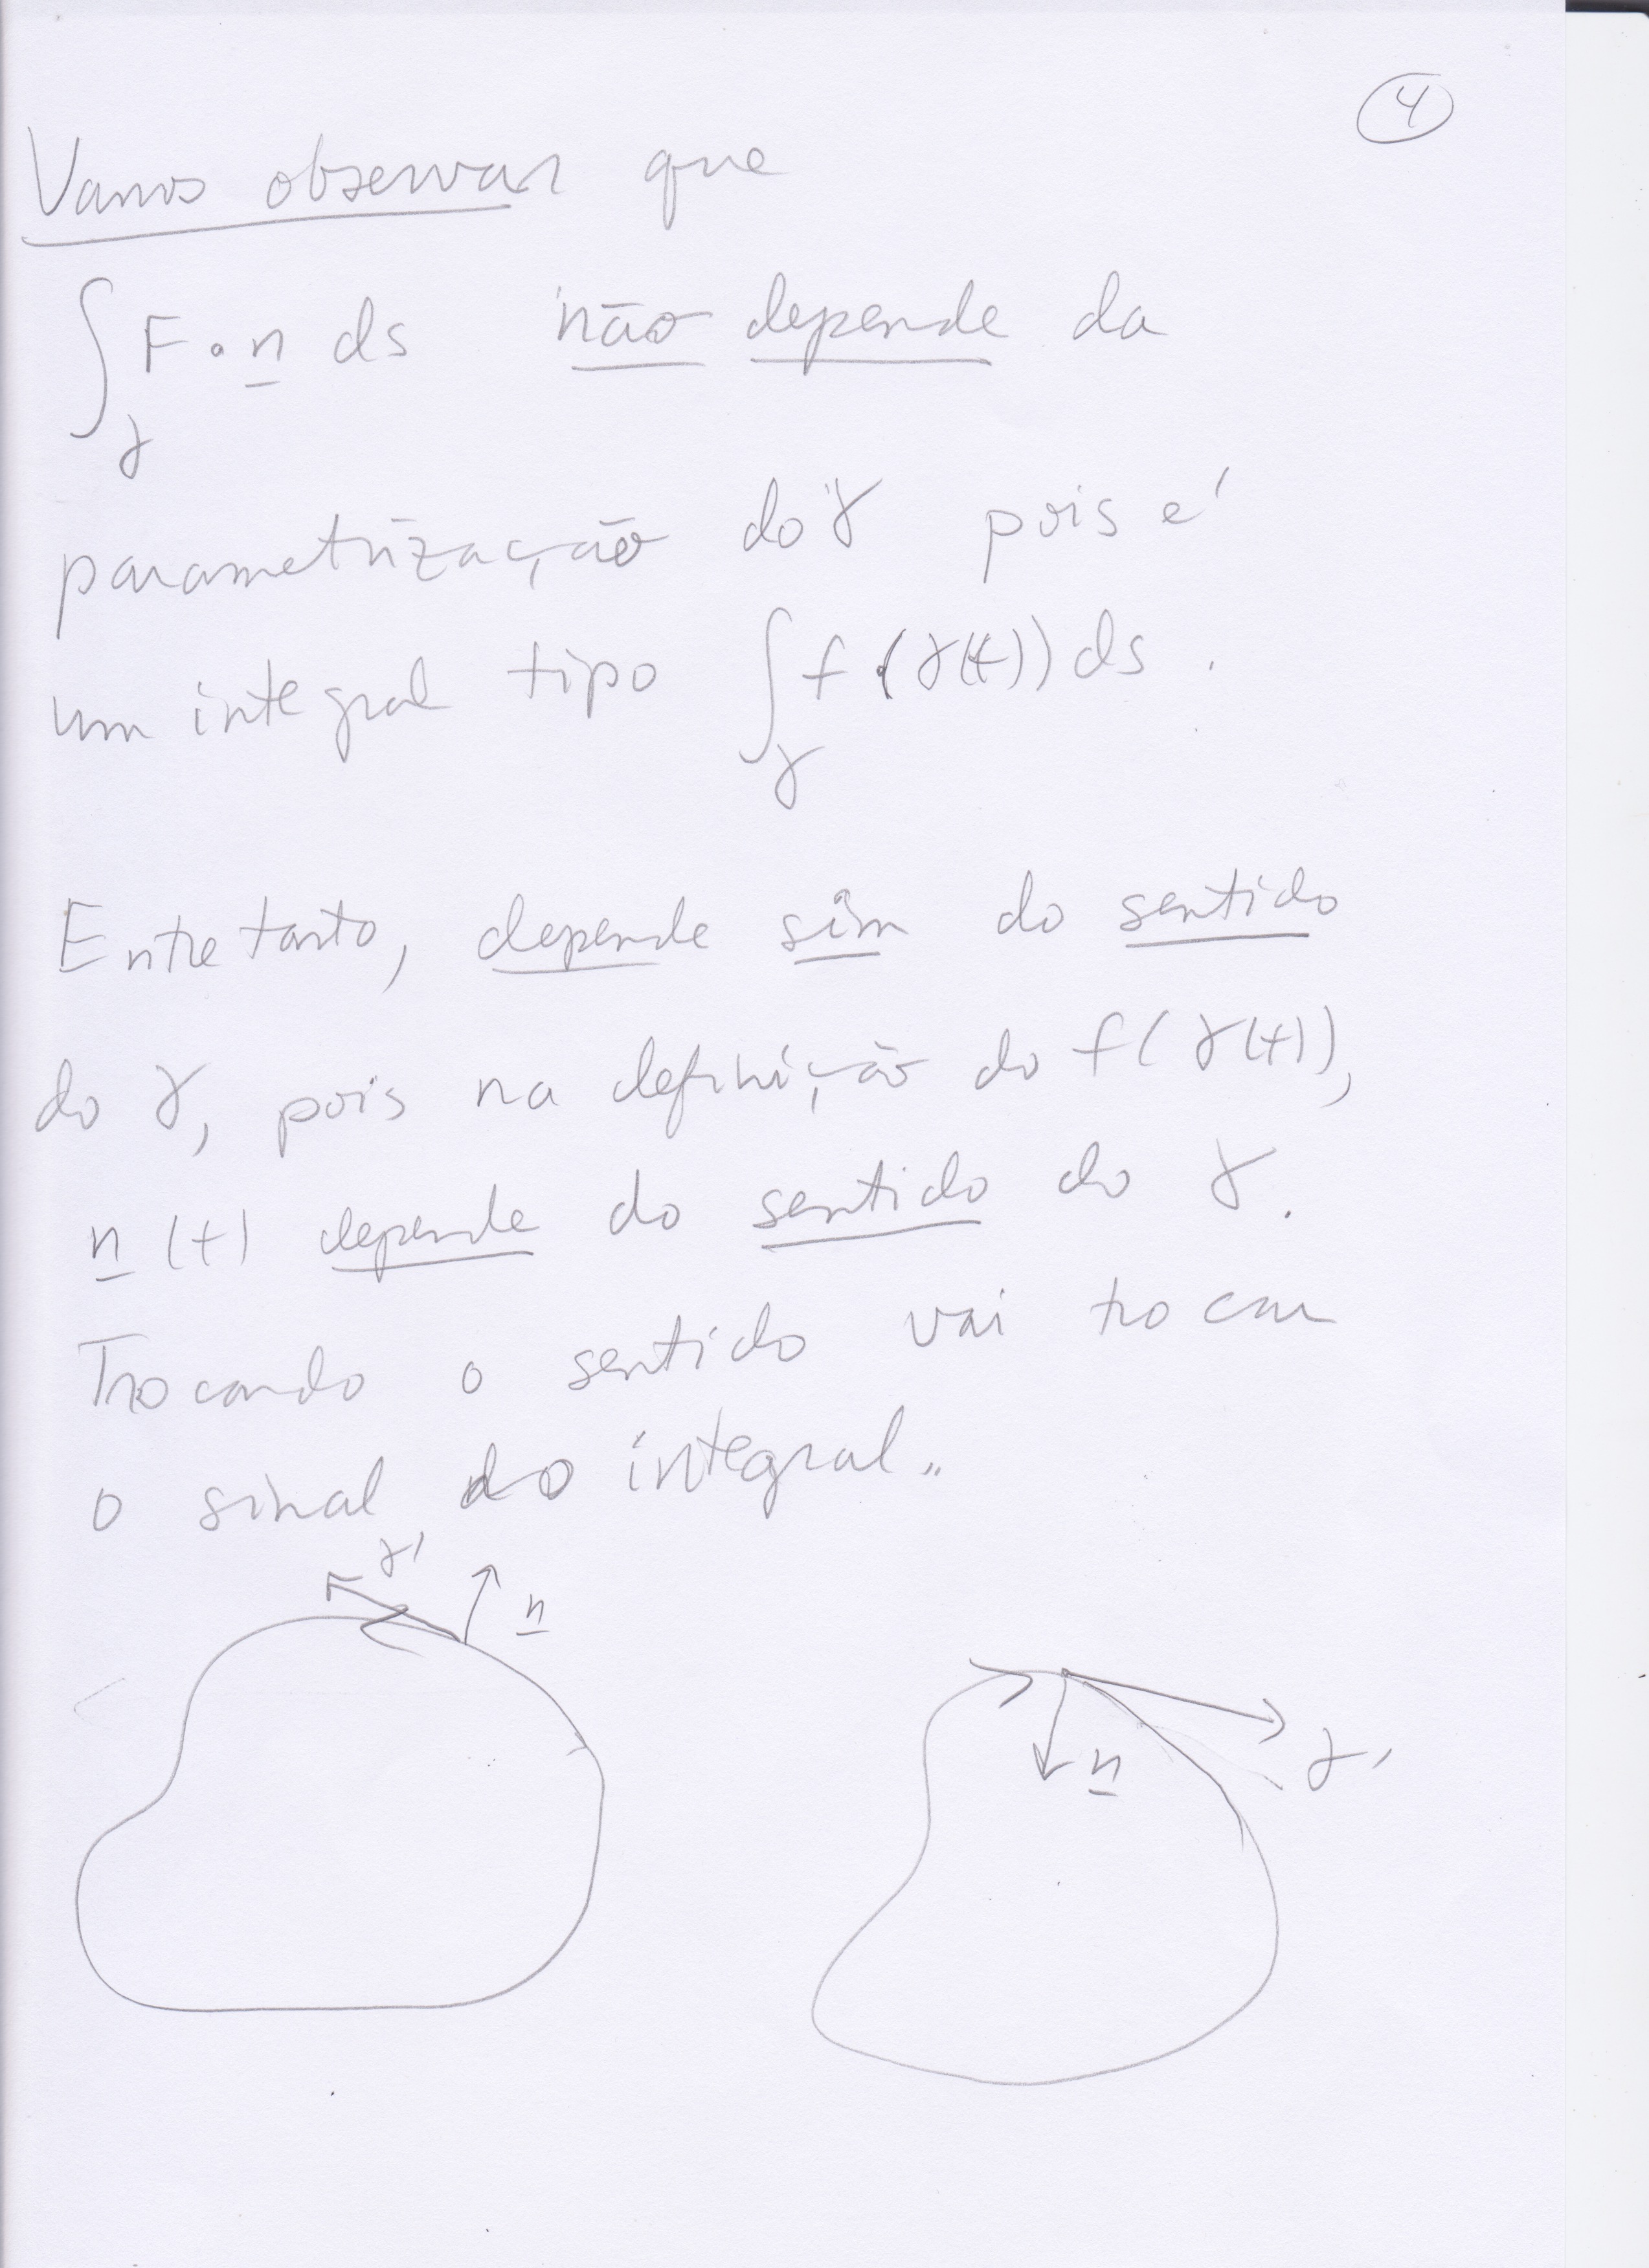 4
Vamos observar que
∫_γ F • n ds não depende da
parametrização do γ pois é
um integral tipo ∫_γ f(γ(t)) ds.
Entretanto, depende sim do sentido
do γ, pois na definição do f(γ(t)),
n(t) depende do sentido do γ.
Trocando o sentido vai trocar
o sinal do integral..
γ'
n
n
γ'